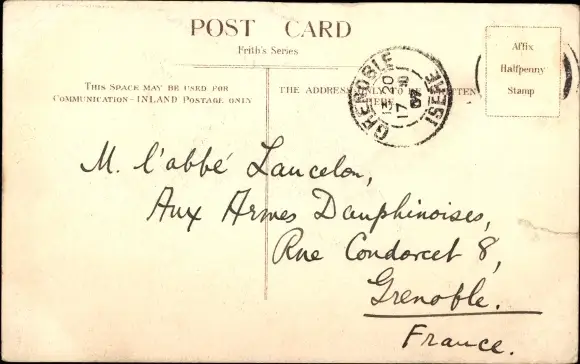 POST CARD
Frith's Series
Affix
Halfpenny
Stamp
THIS SPACE MAY BE USED FOR
COMMUNICATION-INLAND POSTAGE ONLY
THE ADDRESS ONLY TO BE WRITTEN
HERE
GRENOBLE
ISERE
M. l'abbé Lancelon,
Aux Armes Dauphinoises,
Rue Condorcet 8,
Grenoble.
France.